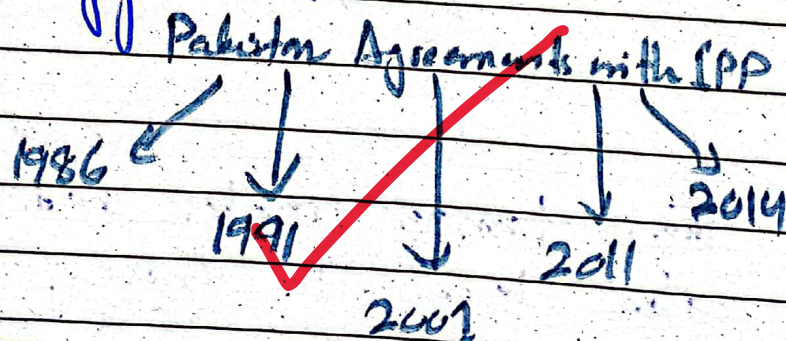 Pakistan Agreements with IPP
1986
1991
2001
2011
2014